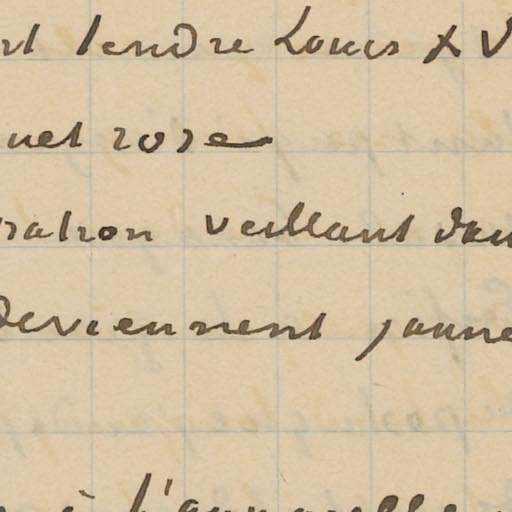 tendre Louis XV
rose
veillant dan
deviennent jaune
à l'aquarelle